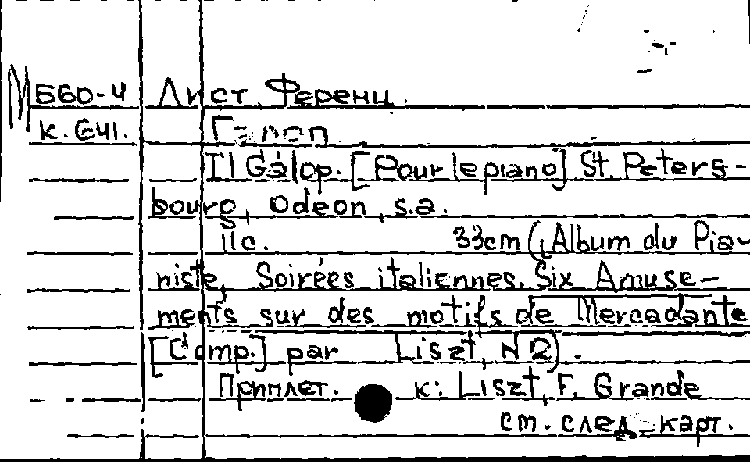 М560-4 Лист, Ференц.
к. 641. Галоп
Il Galop. [Pour le piano] St. Peters-
bourg, Odeon, s.a.
11c. 33cm (Album du Pia-
niste, Soirées italiennes. Six Amuse-
ments sur des motifs de Mercadante
[Comp.] par Liszt, N2).
Приплет. к: Liszt, F. Grande
см. след. карт.